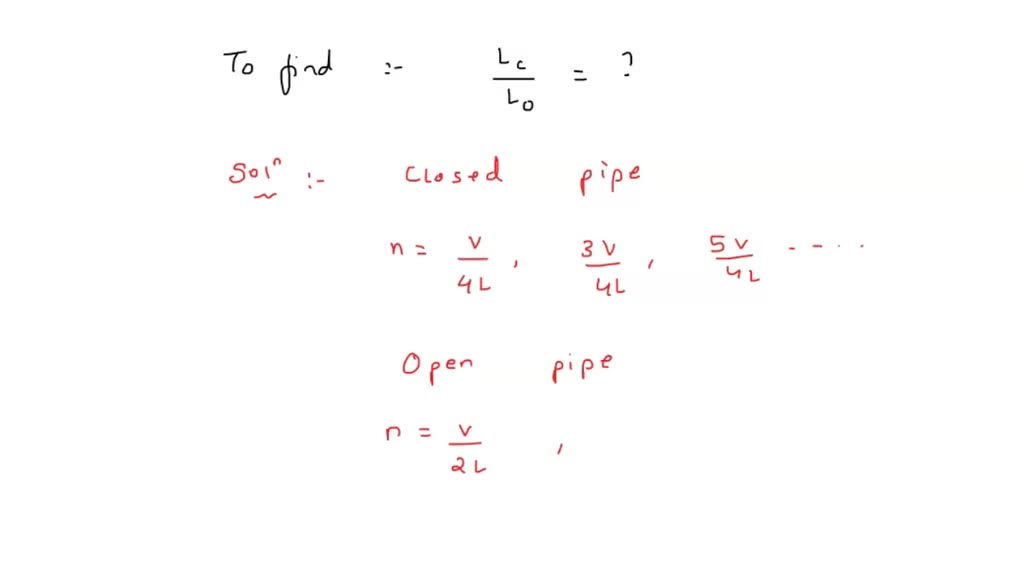 To find :- Lc/Lo = ?
Solⁿ :- Closed pipe
n = v/4L, 3v/4L, 5v/4L - - - -
Open pipe
n = v/2L,